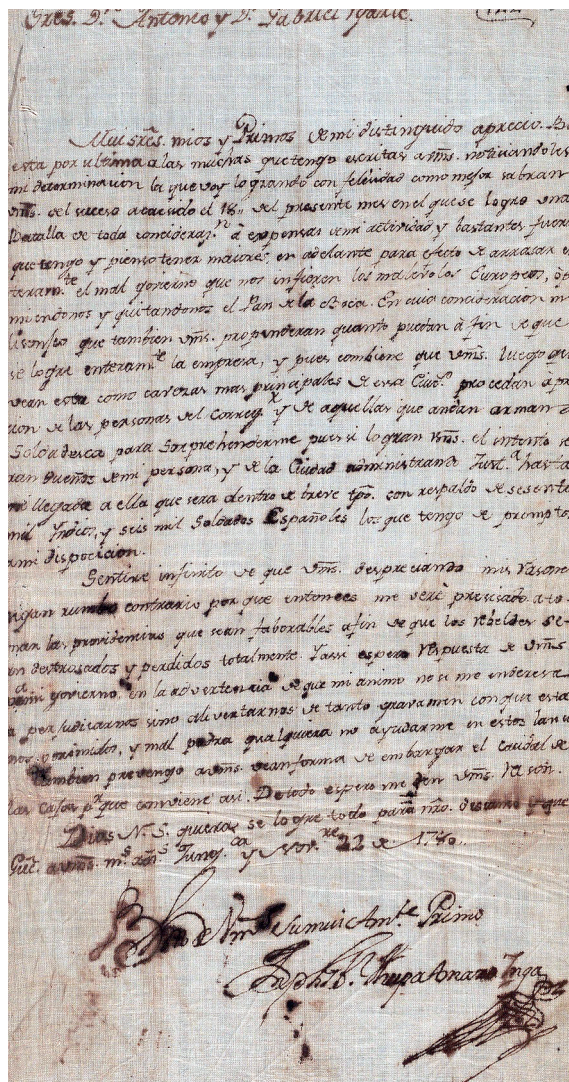 Sres. Dn. Antonio y Dn. Gabriel Ugarte.
Mui sres. mios y Primos de mi distinguido aprecio.
esta por ultima a las muchas que tengo escritas a vms. noticiandoles
mi determinacion la que voy logrando con felicidad como mejor sabran
vms. del suceso acaecido el 18,, del presente mes en el que se logro una
Batalla de toda consideraz.n a expensas de mi actividad y bastantes fuerz
que tengo y pienso tener maiores en adelante para efecto de arrasar en
teram.te el mal govierno que nos infieren los malebolos Europeos, op
miendonos y quitandonos el Pan de la Boca. En cuia concideracion m
lisonjeo que tambien vms. propenderan quanto puedan a fin de que
se logre enteram.te la empresa, y pues combiene que vms. luego que
vean esta como cavezas mas principales de esa Ciud. procedan a pri
cion de las personas del Correg.r y de aquellas que andan arman
Soldadesca para sorprehenderme pues si logran vms. el intento se
ran dueños de mi persona, y de la Ciudad administrando Just.a hasta
mi llegada a ella que sera dentro de breve tpo. con respaldo de sesenta
mil Indios, y seis mil Soldados Españoles los que tengo de prompto
a mi disposicion.
Sentire infinito de que vms. despreciando mis rasone
sigan rumbo contrario por que entonces me será precisado a to
mar las providencias que sean faborables a fin de que los rebeldes se
an destrosados y perdidos totalmente. Y assi espero respuesta de vms
govierno en la advertencia de que mi animo no si me interesa
a perjudicarnos sino a livertarnos de tanto gravamen con que esta
mos oprimidos, y mal podra qualquiera no ayudarme en estos lan
Tambien prevengo a vms. vean forma de embargar el caudal de
las casas pr. que conviene asi. De todo espero me den vms. rason.
Dios N. S. quiera se logre todo para nro. descanso y que
Gue. a vms. m.s añ.s Tung.ca y Nov.re 22 de 1780.
de Vms su mui Am.te Primo
Jph. Thupa Amaro Inga